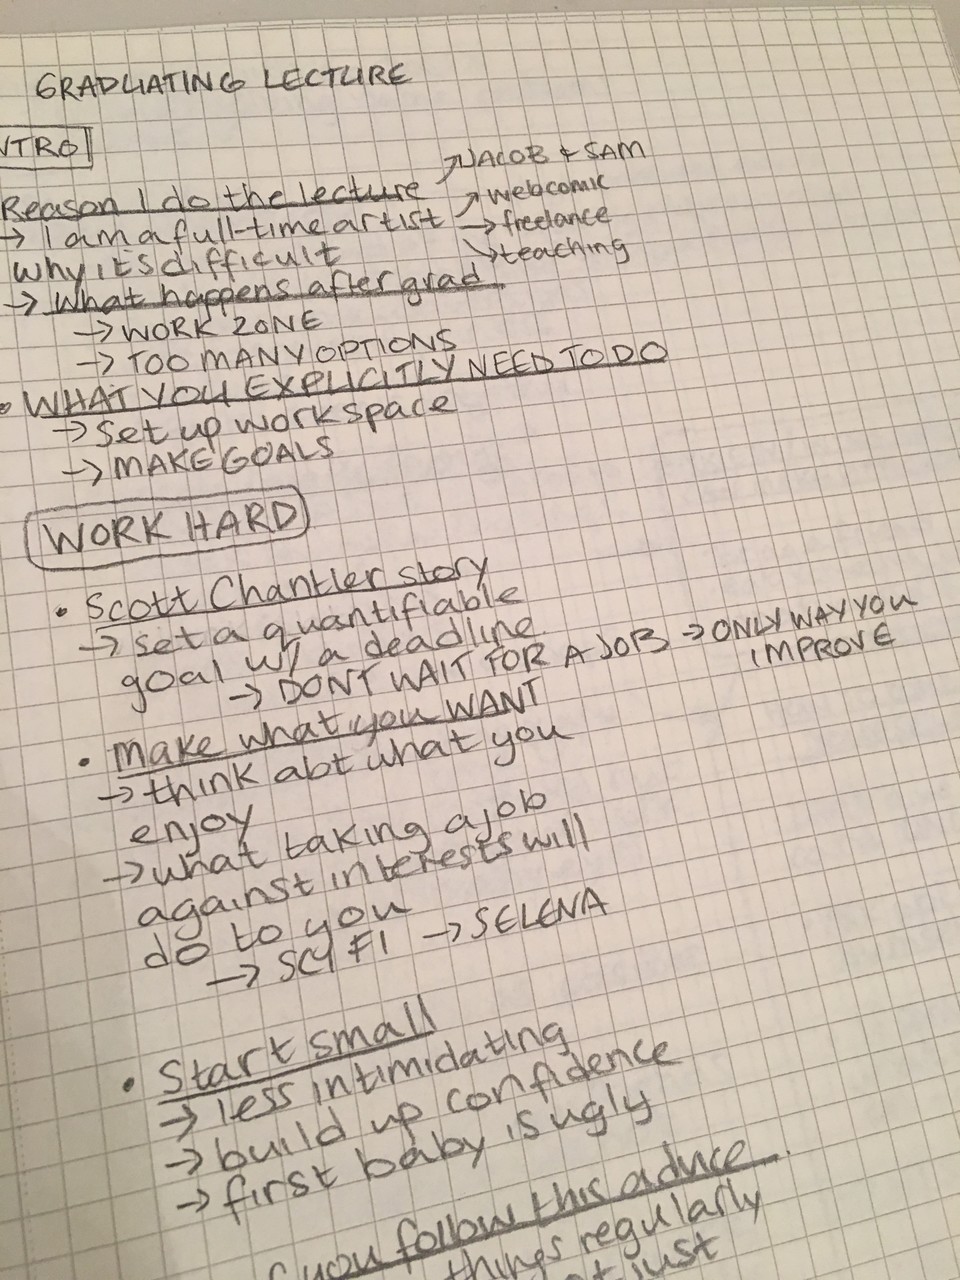 GRADUATING LECTURE
INTRO
Reason I do the lecture ↗ JACOB & SAM
→ I am a full-time artist ↗ webcomic
→ freelance
↘ teaching
why it's difficult
→ What happens after grad
→ WORK ZONE
→ TOO MANY OPTIONS
• WHAT YOU EXPLICITLY NEED TO DO
→ Set up work space
→ MAKE GOALS
WORK HARD
• Scott Chantler story
→ set a quantifiable
goal w/ a deadline
→ DONT WAIT FOR A JOB → ONLY WAY YOU
IMPROVE
• Make what you WANT
→ think abt what you
enjoy
→ what taking a job
against interests will
do to you
→ SCI FI → SELENA
• Start small
→ less intimidating
→ build up confidence
→ first baby is ugly
you follow this advice
things regularly
just